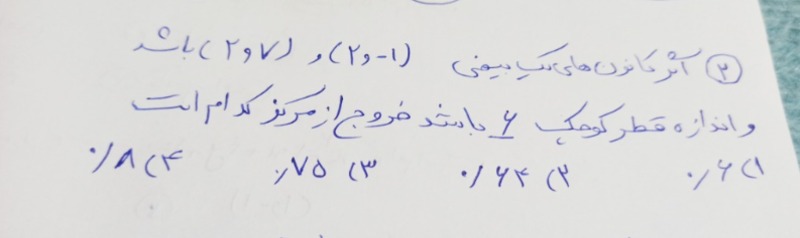 ③ اگر کانون‌های یک بیضی (۲و-۱) و (۲و۷) باشد
و اندازه قطر کوچک ۶ باشد خروج از مرکز کدام است
۱) ۰/۶ ۲) ۰/۶۴ ۳) ۰/۷۵ ۴) ۰/۸